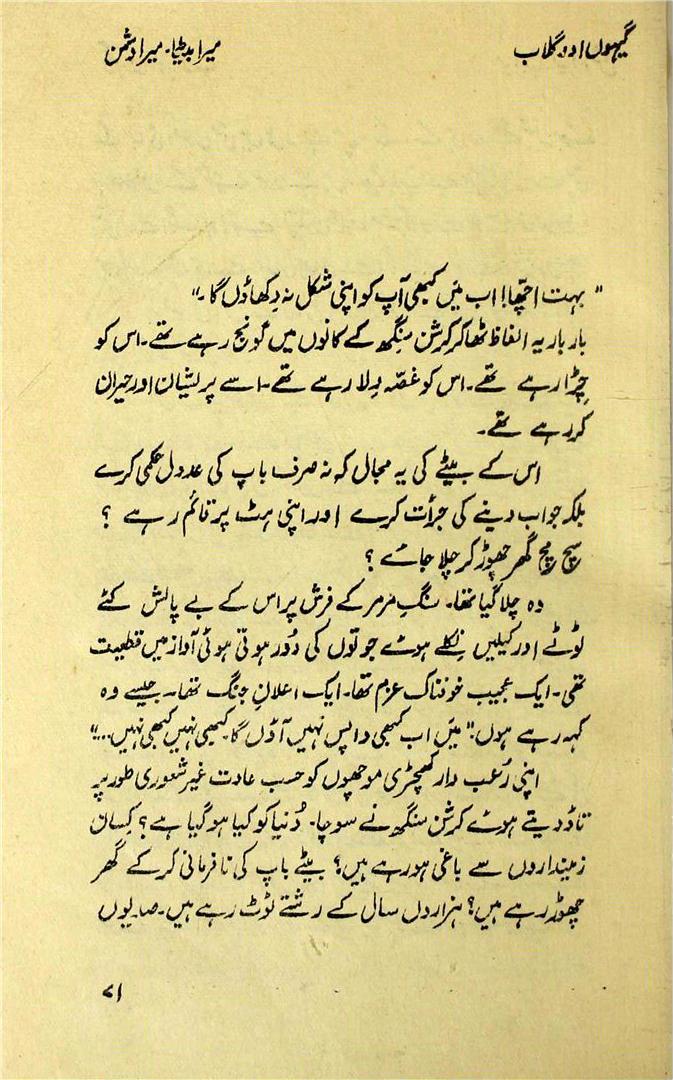 گیہوں اور گلاب
میرا بیٹا۔ میرا دشمن
"بہت اچھا! اب میَں کبھی آپ کو اپنی شکل نہ دِکھاؤں گا۔"
بار بار یہ الفاظ ٹھاکر کرشن سنگھ کے کانوں میں گونج رہے تھے۔ اس کو
چِڑا رہے تھے۔ اس کو غصّہ دِلا رہے تھے۔ اسے پریشان اور حیران
کر رہے تھے۔
اس کے بیٹے کی یہ مجال کہ نہ صرف باپ کی عدول حکمی کرے
بلکہ جواب دینے کی جرأت کرے اور اپنی ہٹ پر قائم رہے ؟
سچ مچ گھر چھوڑ کر چلا جائے ؟
وہ چلا گیا تھا۔ سنگِ مرمر کے فرش پر اس کے بے پالش کئے
ٹوٹے اور کیلیں نِکلے ہوئے جوتوں کی دُور ہوتی ہوئی آواز میں قطعیت
تھی۔ ایک عجیب خوفناک عزم تھا۔ ایک اعلانِ جنگ تھا۔ جیسے وہ
کہہ رہے ہوں۔" میَں اب کبھی واپس نہیں آؤں گا۔ کبھی نہیں کبھی نہیں ..."
اپنی رُعب دار کھچڑی موچھوں کو حسب عادت غیر شعوری طور پہ
تاؤ دیتے ہوئے کرشن سنگھ نے سوچا۔ دُنیا کو کیا ہو گیا ہے ؟ کِسان
زمینداروں سے باغی ہو رہے ہیں ؟ بیٹے باپ کی نافرمانی کر کے گھر
چھوڑ رہے ہیں ؟ ہزاروں سال کے رشتے ٹوٹ رہے ہیں۔ صدیوں
۷۱